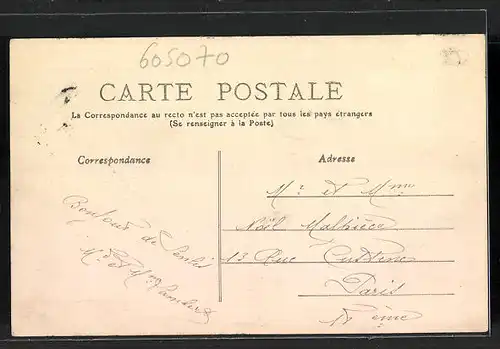 605070
CARTE POSTALE
La Correspondance au recto n'est pas acceptée par tous les pays étrangers
(Se renseigner à la Poste)
Correspondance
Adresse
Mr et Mme
Noël
13 Rue Custine
Paris
Bonjour de Senlis
Mr et Mme Lambert